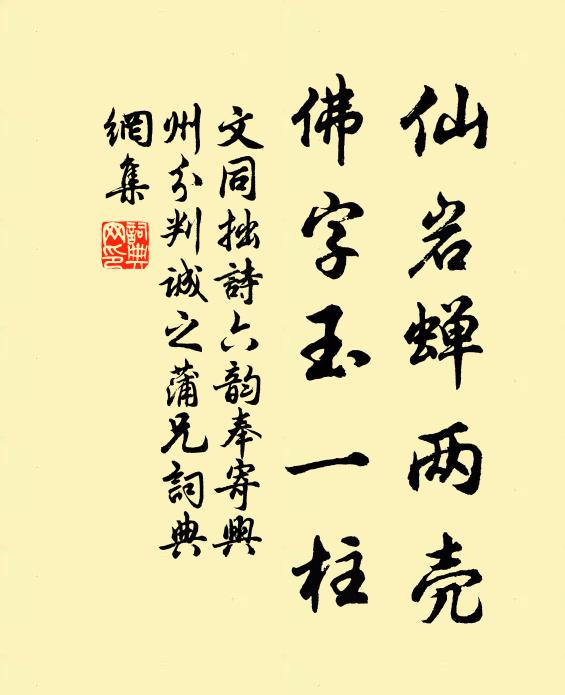 仙岩蝉两壳
佛字玉一柱
文同拙詩六韵奉寄興
州分判诚之蒲兄詞典
網集
詞典网印